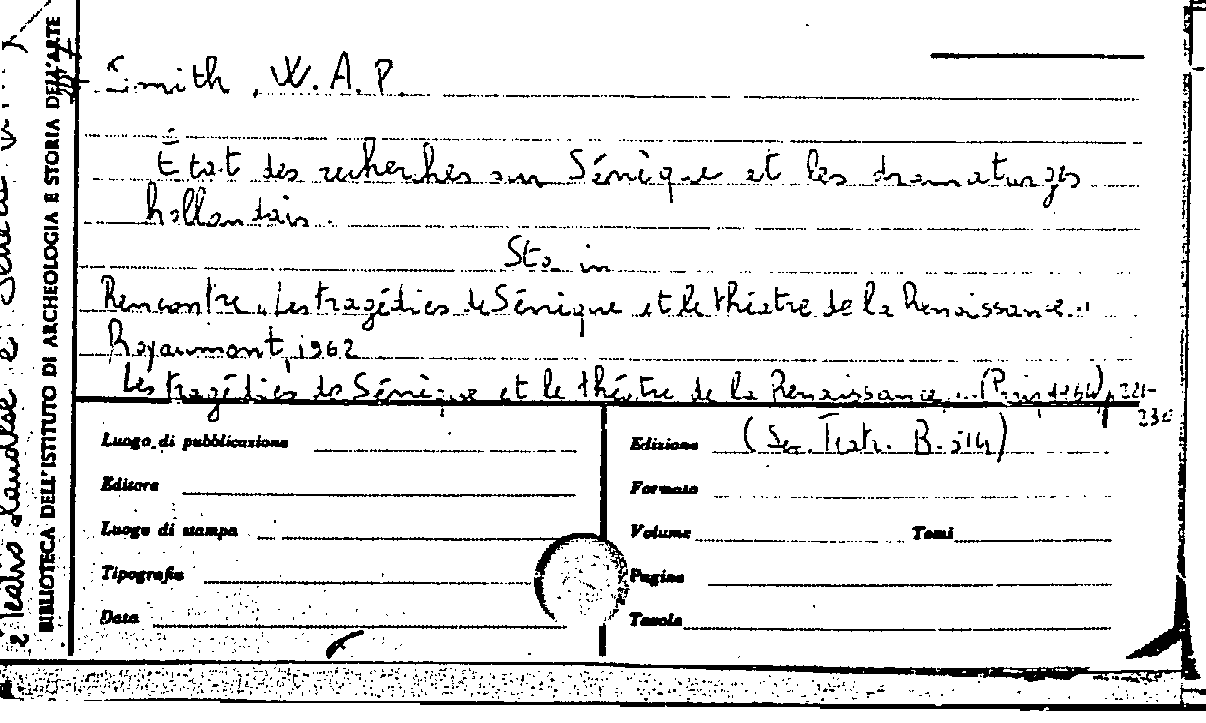 Smith, W. A. P.
État des recherches sur Sénèque et les dramaturges
hollandais.
Sta in
Rencontre. Les tragédies de Sénèque et le théatre de la Renaissance...
Royaumont, 1962
Les tragédies de Sénèque et le théâtre de la Renaissance... (Paris 1964), p. 221-
230
Luogo di pubblicazione
Edizione (Ser. Teatr. B. 514)
Editore
Formato
Luogo di stampa
Volume Tomi
Tipografia
Pagine
Data
Tavole
BIBLIOTECA DELL'ISTITUTO DI ARCHEOLOGIA E STORIA DELL'ARTE
Teatro olandese e Seneca